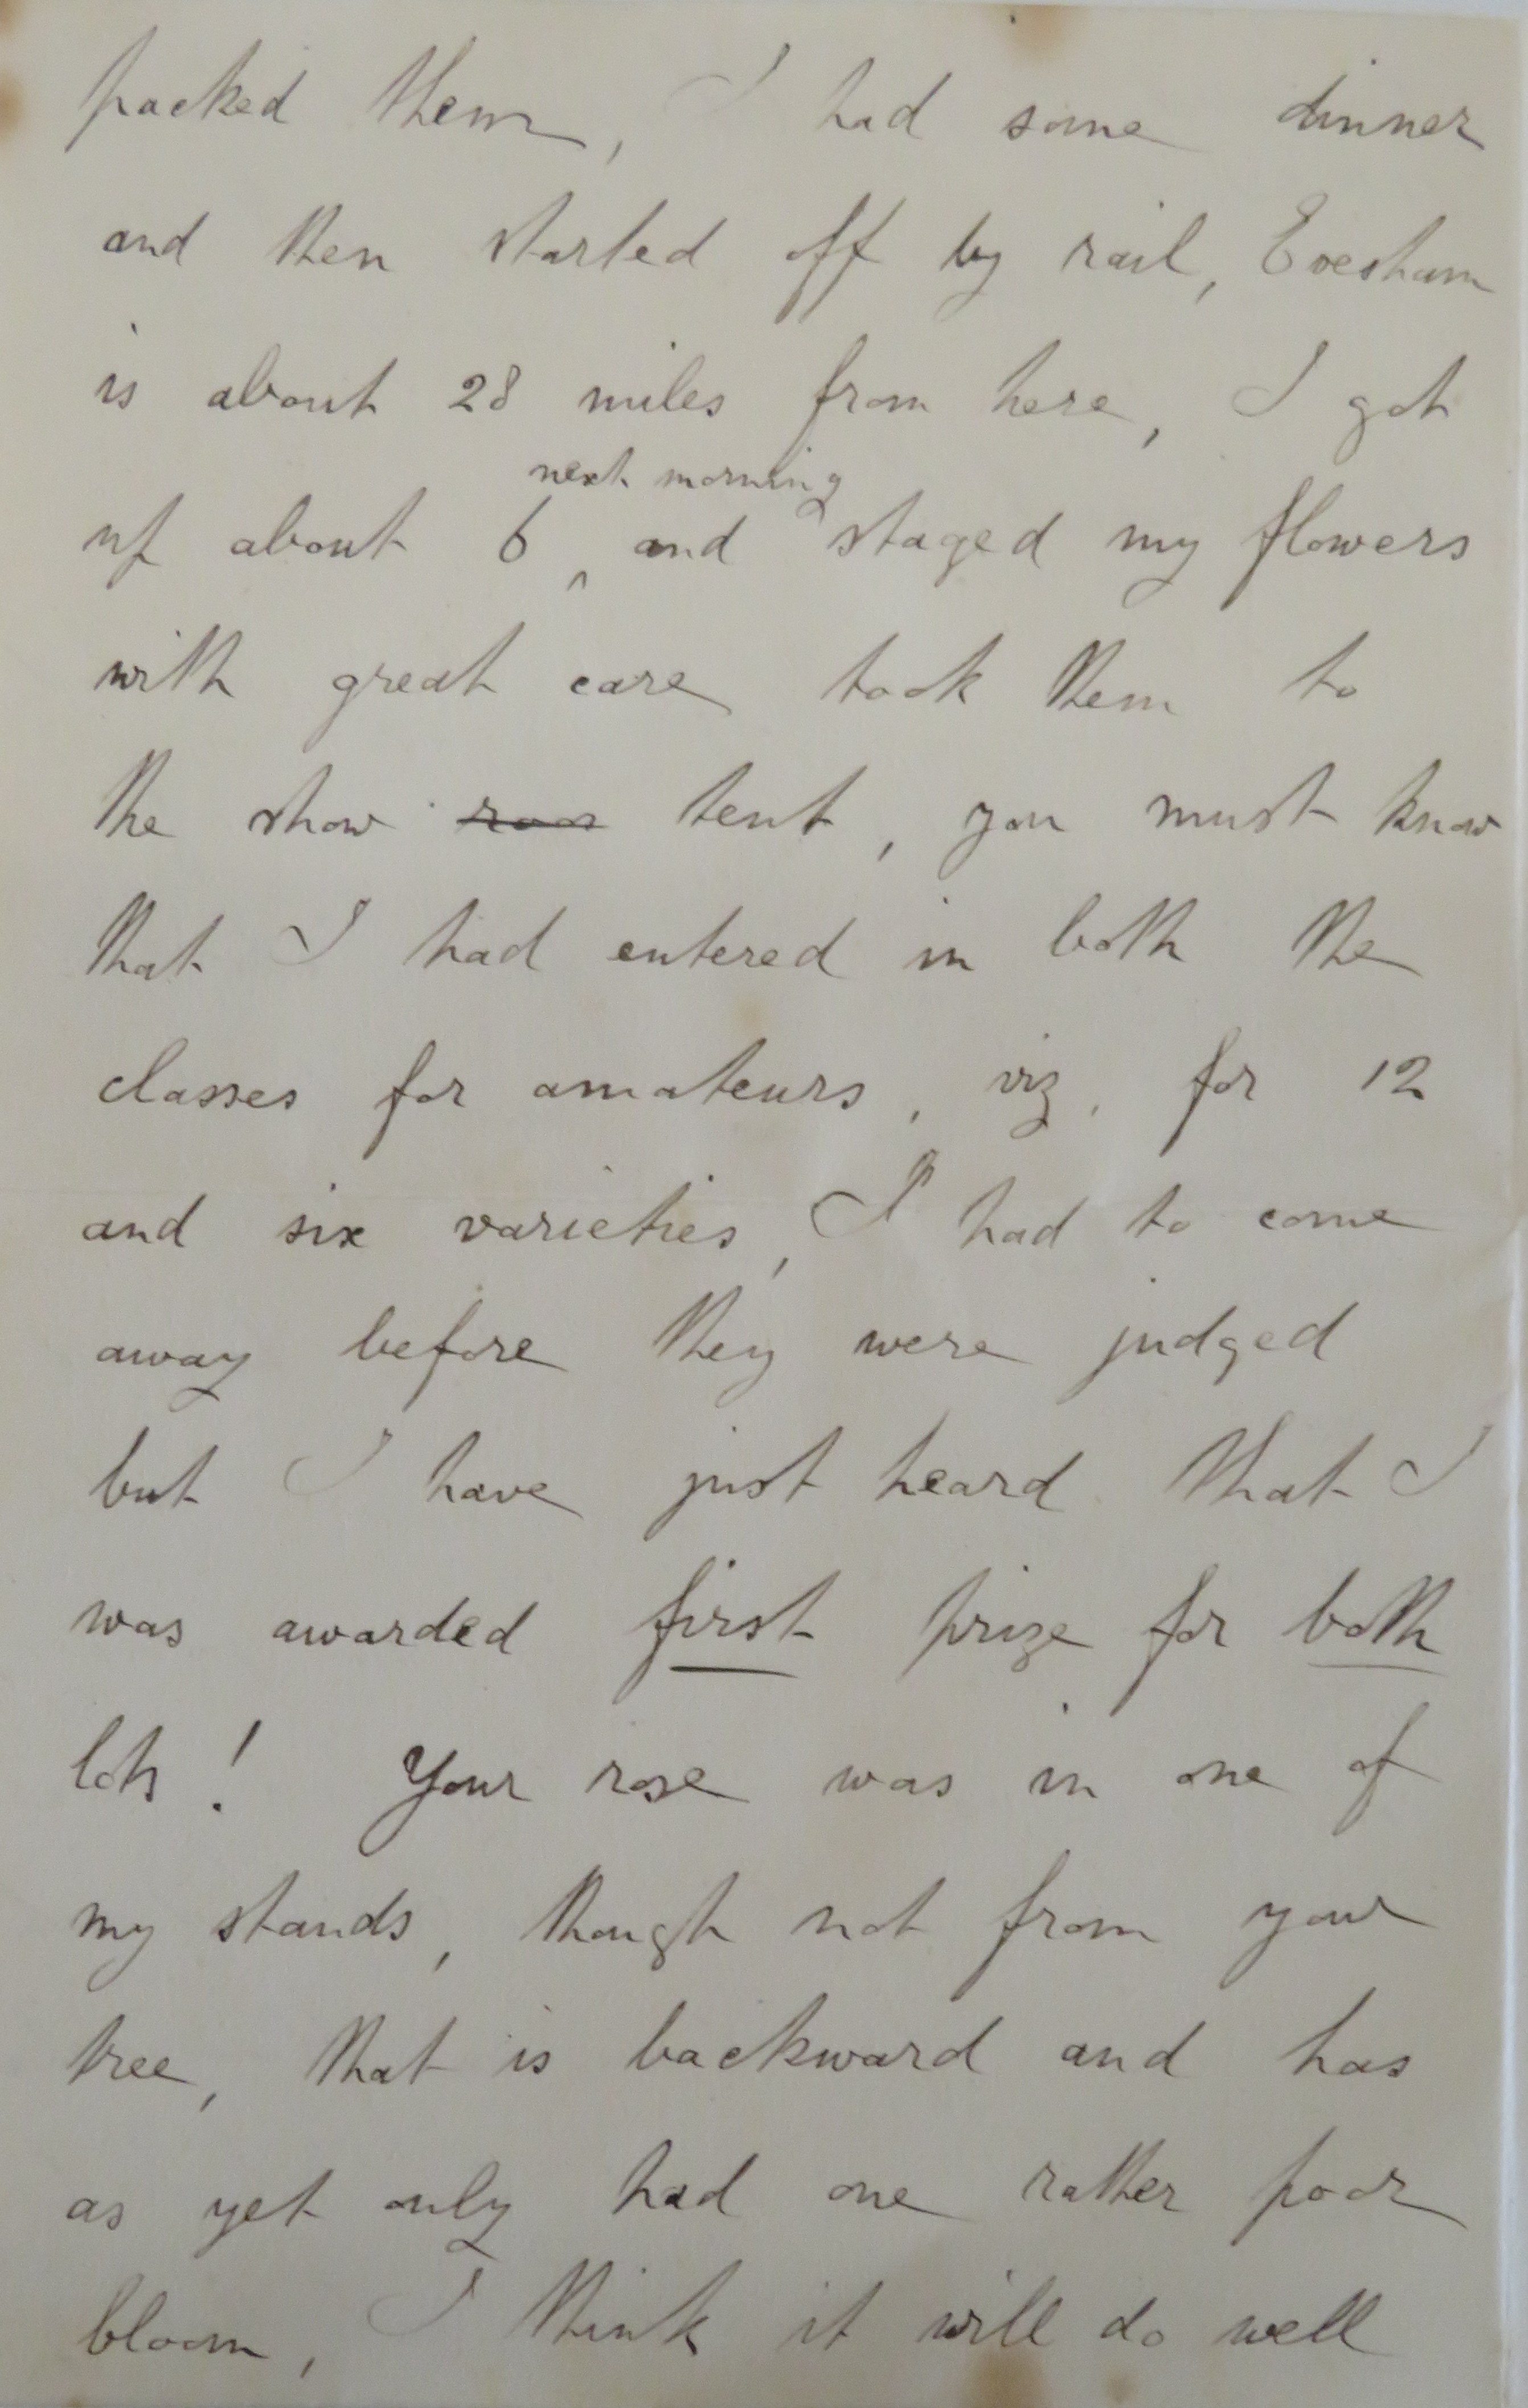 packed them, I had some dinner
and then started off by rail, Evesham
is about 28 miles from here, I got
next morning
up about 6 ^ and staged my flowers
with great care took them to
the show tent, you must know
that I had entered in both the
classes for amateurs, viz, for 12
and six varieties, I had to come
away before they were judged
but I have just heard that I
was awarded first prize for both
lots! Your rose was in one of
my stands, though not from your
tree, that is backward and has
as yet only had one rather poor
bloom, I think it will do well